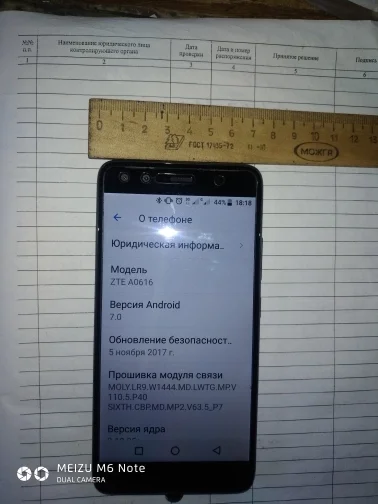 №№ п.п.
Наименование юридического лица контролирующего органа
Дата проверки
Дата и номер распоряжения
Принятое решение
Подпись
1 2 3 4 5 6
0 1 2 3 4 5 6 7 8 9 10 11 12 13 14 15
ГОСТ 17435-72
18:18
44%
О телефоне
Юридическая информа..
Модель
ZTE A0616
Версия Android
7.0
Обновление безопасност..
5 ноября 2017 г.
Прошивка модуля связи
MOLY.LR9.W1444.MD.LWTG.MP.V
110.5.P40
SIXTH.CBP.MD.MP2.V63.5_P7
Версия ядра
MEIZU M6 Note
DUAL CAMERA